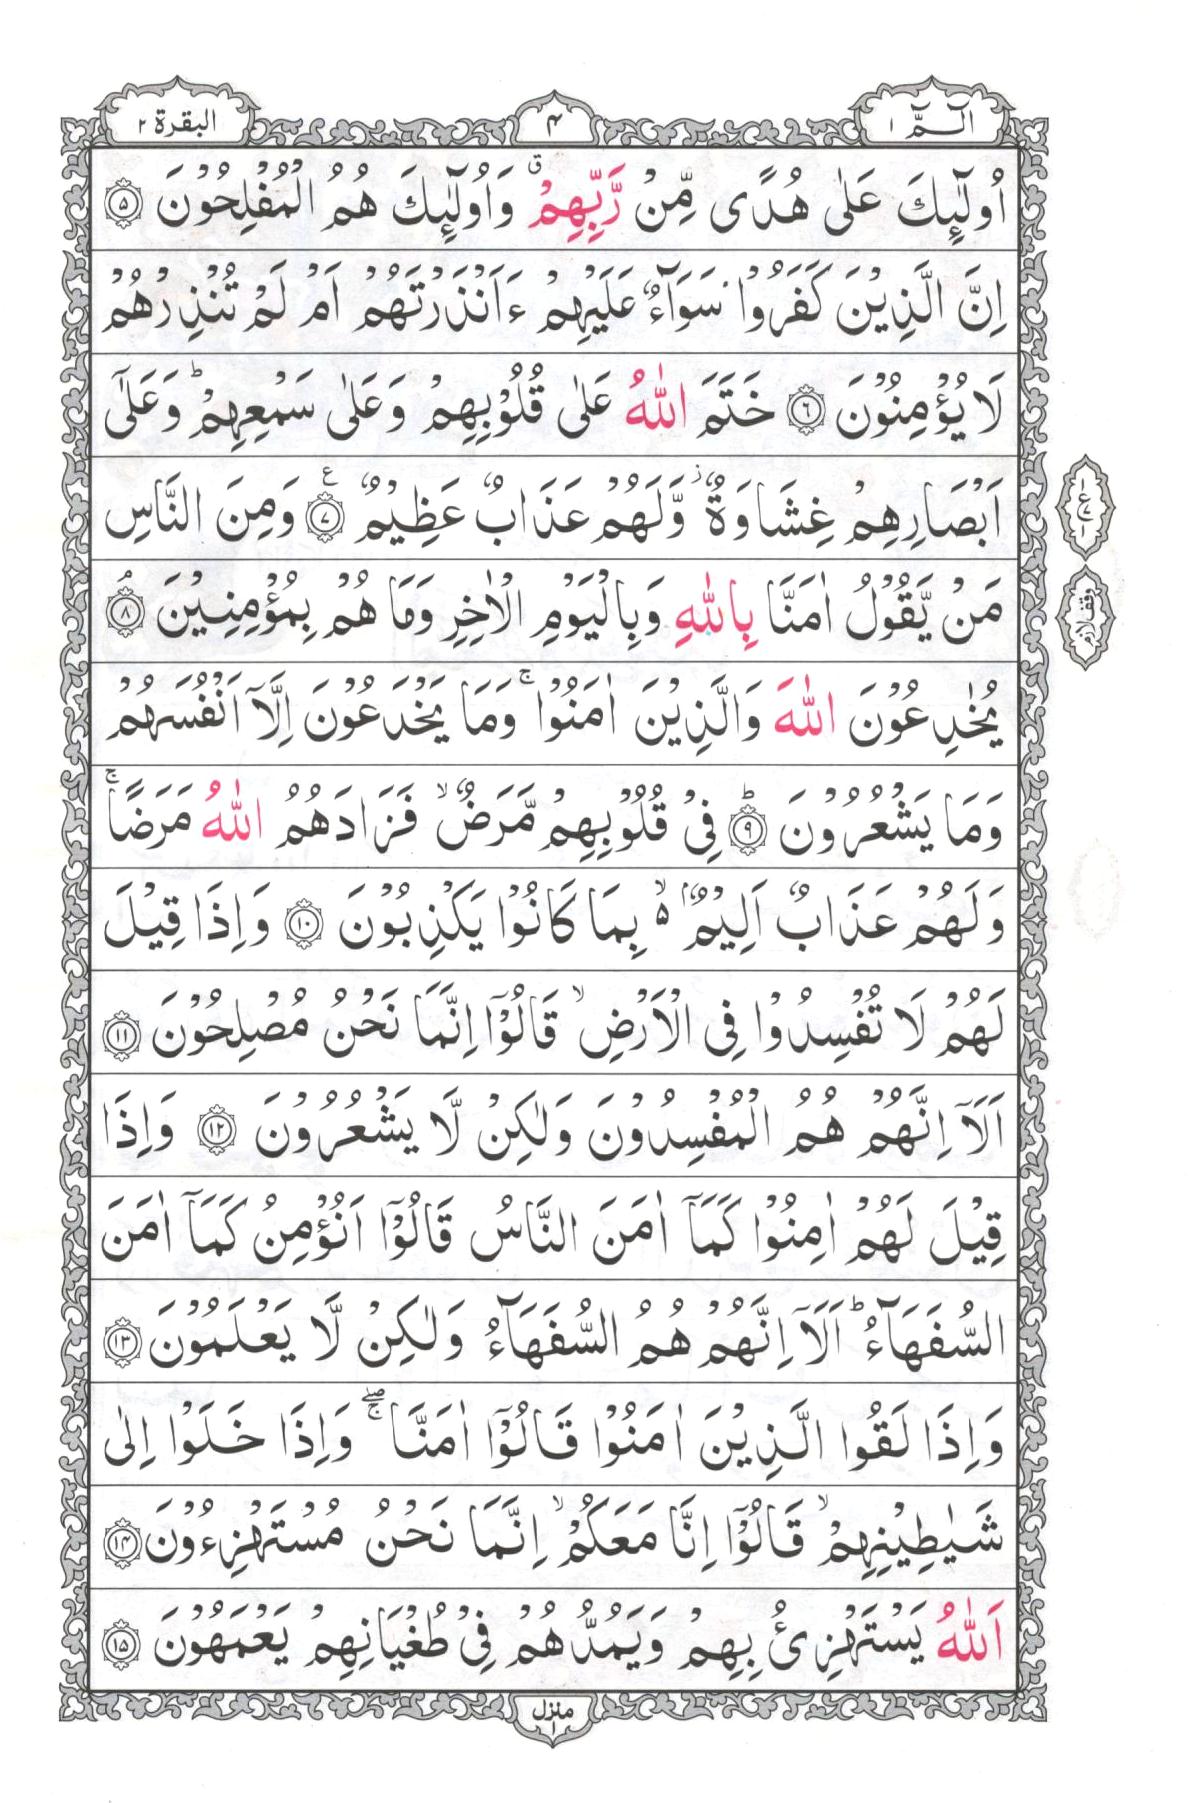 الٓمّٓ ١
۴
البقرة ٢
اُولٰٓئِكَ عَلٰى هُدًى مِّنْ رَّبِّهِمْ ۗ وَاُولٰٓئِكَ هُمُ الْمُفْلِحُوْنَ ۝۵
اِنَّ الَّذِيْنَ كَفَرُوْا سَوَآءٌ عَلَيْهِمْ ءَاَنْذَرْتَهُمْ اَمْ لَمْ تُنْذِرْهُمْ
لَا يُؤْمِنُوْنَ ۝۶ خَتَمَ اللّٰهُ عَلٰى قُلُوْبِهِمْ وَعَلٰى سَمْعِهِمْ ؕ وَعَلٰٓى
اَبْصَارِهِمْ غِشَاوَةٌ ؗ وَّلَهُمْ عَذَابٌ عَظِيْمٌ ۝۷ ع وَمِنَ النَّاسِ
مَنْ يَّقُوْلُ اٰمَنَّا بِاللّٰهِ وَبِالْيَوْمِ الْاٰخِرِ وَمَا هُمْ بِمُؤْمِنِيْنَ ۝۸ۘ
يُخٰدِعُوْنَ اللّٰهَ وَالَّذِيْنَ اٰمَنُوْا ۚ وَمَا يَخْدَعُوْنَ اِلَّاۤ اَنْفُسَهُمْ
وَمَا يَشْعُرُوْنَ ۝۹ؕ فِيْ قُلُوْبِهِمْ مَّرَضٌ ۙ فَزَادَهُمُ اللّٰهُ مَرَضًا ۚ
وَلَهُمْ عَذَابٌ اَلِيْمٌۢ ۙ۵ بِمَا كَانُوْا يَكْذِبُوْنَ ۝۱۰ وَاِذَا قِيْلَ
لَهُمْ لَا تُفْسِدُوْا فِى الْاَرْضِ ۙ قَالُوْۤا اِنَّمَا نَحْنُ مُصْلِحُوْنَ ۝۱۱
اَلَاۤ اِنَّهُمْ هُمُ الْمُفْسِدُوْنَ وَلٰكِنْ لَّا يَشْعُرُوْنَ ۝۱۲ وَاِذَا
قِيْلَ لَهُمْ اٰمِنُوْا كَمَاۤ اٰمَنَ النَّاسُ قَالُوْۤا اَنُؤْمِنُ كَمَاۤ اٰمَنَ
السُّفَهَآءُ ؕ اَلَاۤ اِنَّهُمْ هُمُ السُّفَهَآءُ وَلٰكِنْ لَّا يَعْلَمُوْنَ ۝۱۳
وَاِذَا لَقُوا الَّذِيْنَ اٰمَنُوْا قَالُوْۤا اٰمَنَّا ۖۚ وَاِذَا خَلَوْا اِلٰى
شَيٰطِيْنِهِمْ ۙ قَالُوْۤا اِنَّا مَعَكُمْ ۙ اِنَّمَا نَحْنُ مُسْتَهْزِءُوْنَ ۝۱۴
اَللّٰهُ يَسْتَهْزِئُ بِهِمْ وَيَمُدُّهُمْ فِيْ طُغْيَانِهِمْ يَعْمَهُوْنَ ۝۱۵
وقف لازم
منزل ١